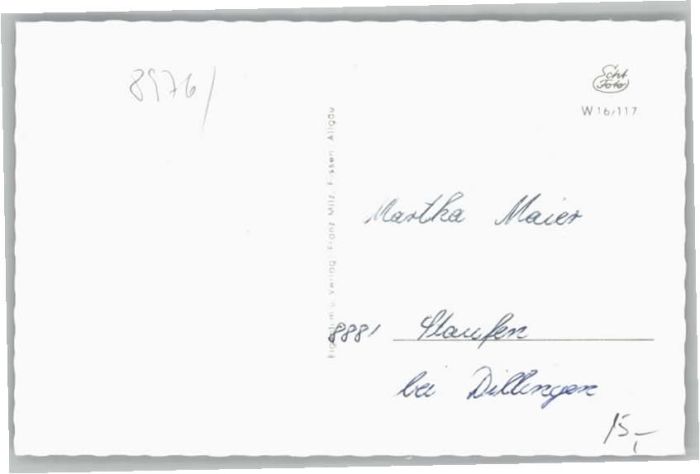 8976/
Echt
Foto
W 16/117
Eigentum u. Verlag Franz Milz, Füssen Allgäu
Martha Maier
8881 Staufen
bei Dillingen
15,-